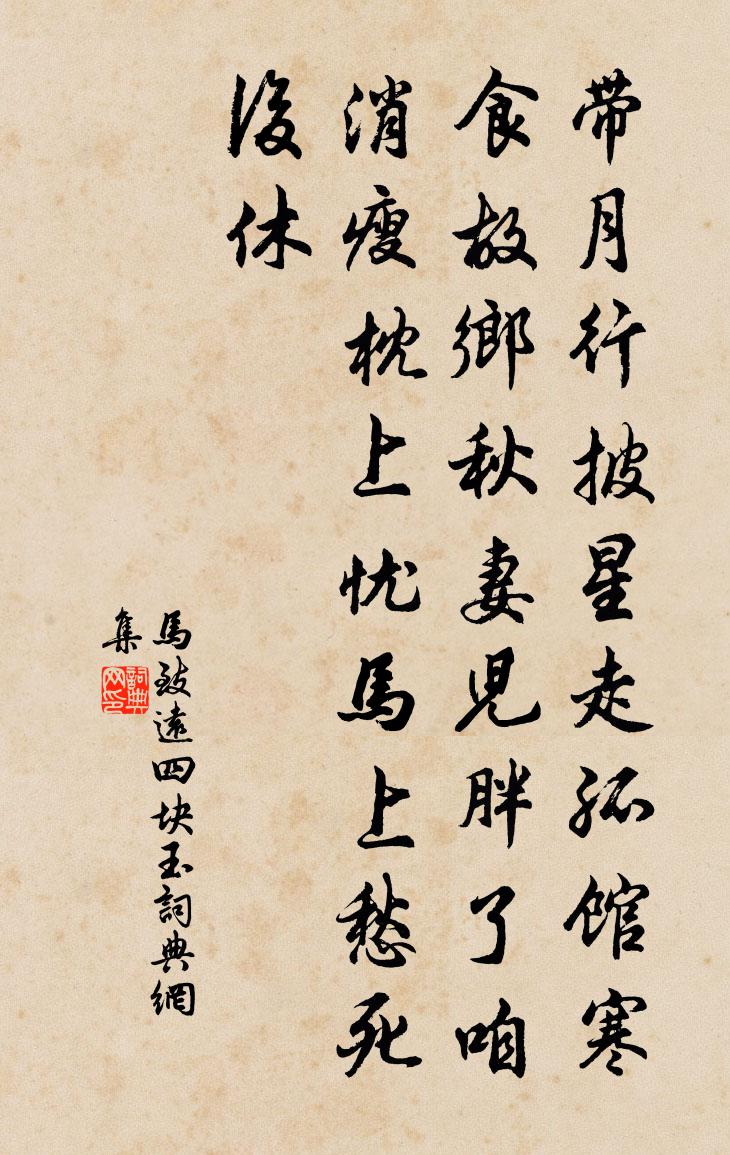 带月行披星走孤馆寒
食故鄉秋妻児胖了咱
消瘦枕上忧馬上愁死
後休
馬致遠四块玉詞典網
集
詞典
网印